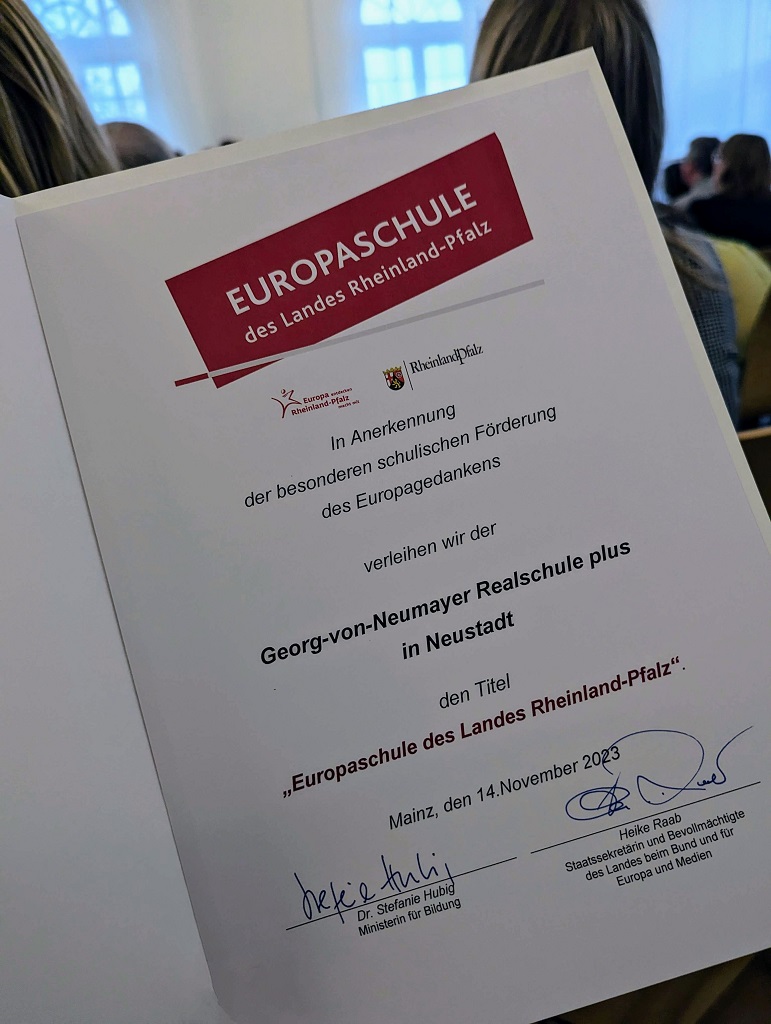 EUROPASCHULE
des Landes Rheinland-Pfalz
Europa entdecken
Rheinland-Pfalz
macht mit
RheinlandPfalz
In Anerkennung
der besonderen schulischen Förderung
des Europagedankens
verleihen wir der
Georg-von-Neumayer Realschule plus
in Neustadt
den Titel
„Europaschule des Landes Rheinland-Pfalz“.
Mainz, den 14.November 2023
Stefanie Hubig
Dr. Stefanie Hubig
Ministerin für Bildung
Heike Raab
Staatssekretärin und Bevollmächtigte
des Landes beim Bund und für
Europa und Medien